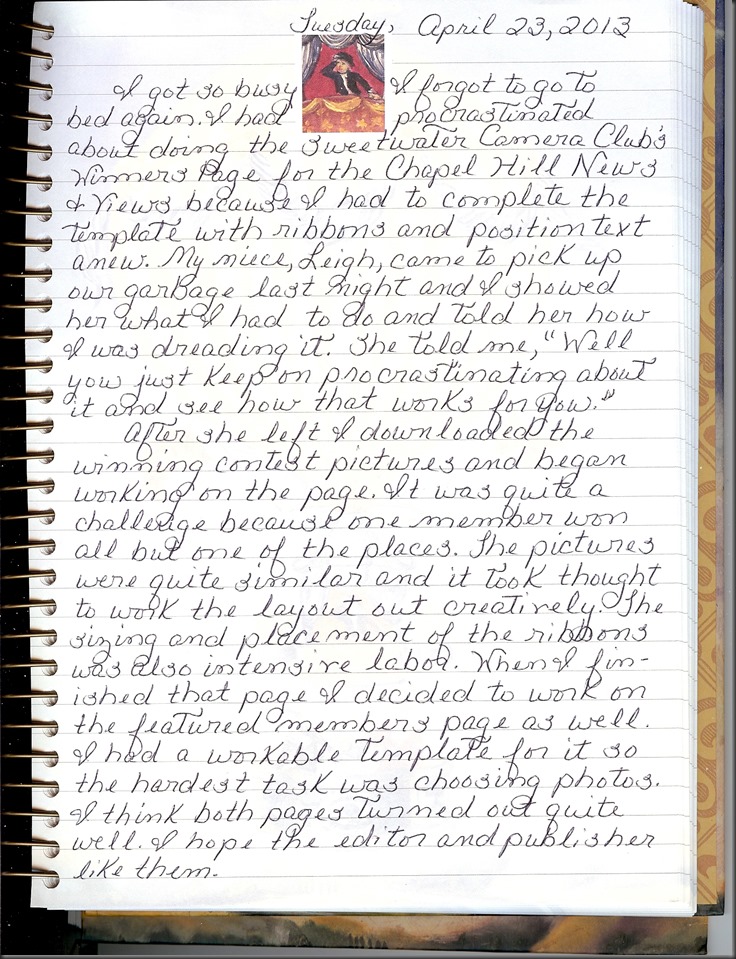 Tuesday, April 23, 2013
I got so busy I forgot to go to
bed again. I had procrastinated
about doing the Sweetwater Camera Club's
Winners Page for the Chapel Hill News
& Views because I had to complete the
template with ribbons and position text
anew. My niece, Leigh, came to pick up
our garbage last night and I showed
her what I had to do and told her how
I was dreading it. She told me, "Well
you just keep on procrastinating about
it and see how that works for you."
After she left I downloaded the
winning contest pictures and began
working on the page. It was quite a
challenge because one member won
all but one of the places. The pictures
were quite similar and it took thought
to work the layout out creatively. The
sizing and placement of the ribbons
was also intensive labor. When I fin-
ished that page I decided to work on
the featured members page as well.
I had a workable template for it so
the hardest task was choosing photos.
I think both pages turned out quite
well. I hope the editor and publisher
like them.